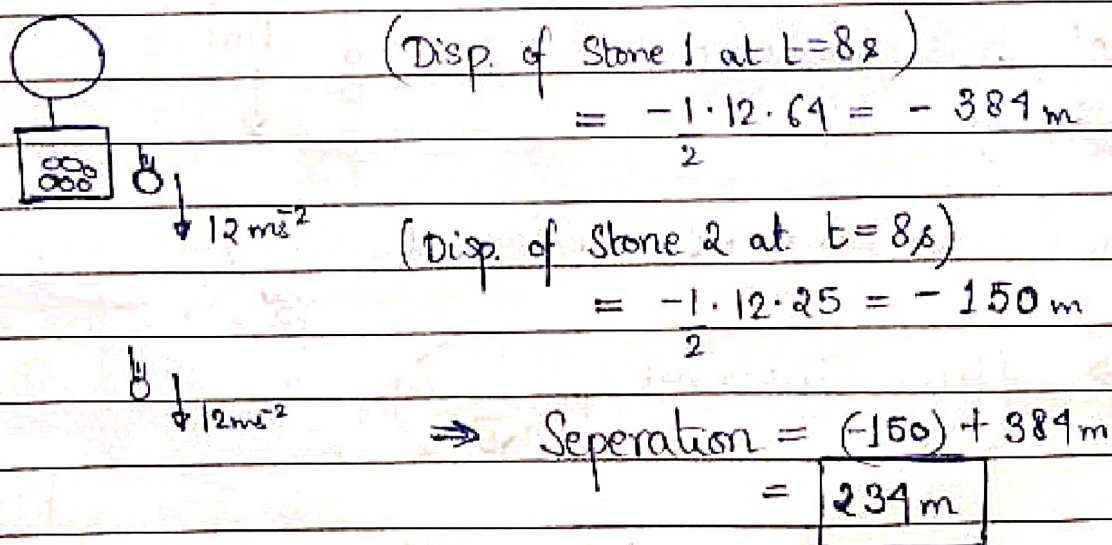 (Disp. of Stone 1 at t=8s)
= -1/2 · 12 · 64 = - 384 m
12 ms⁻²
(Disp. of Stone 2 at t=8s)
= -1/2 · 12 · 25 = - 150 m
12 ms⁻²
⇒ Seperation = (-150) + 384 m
= 234 m